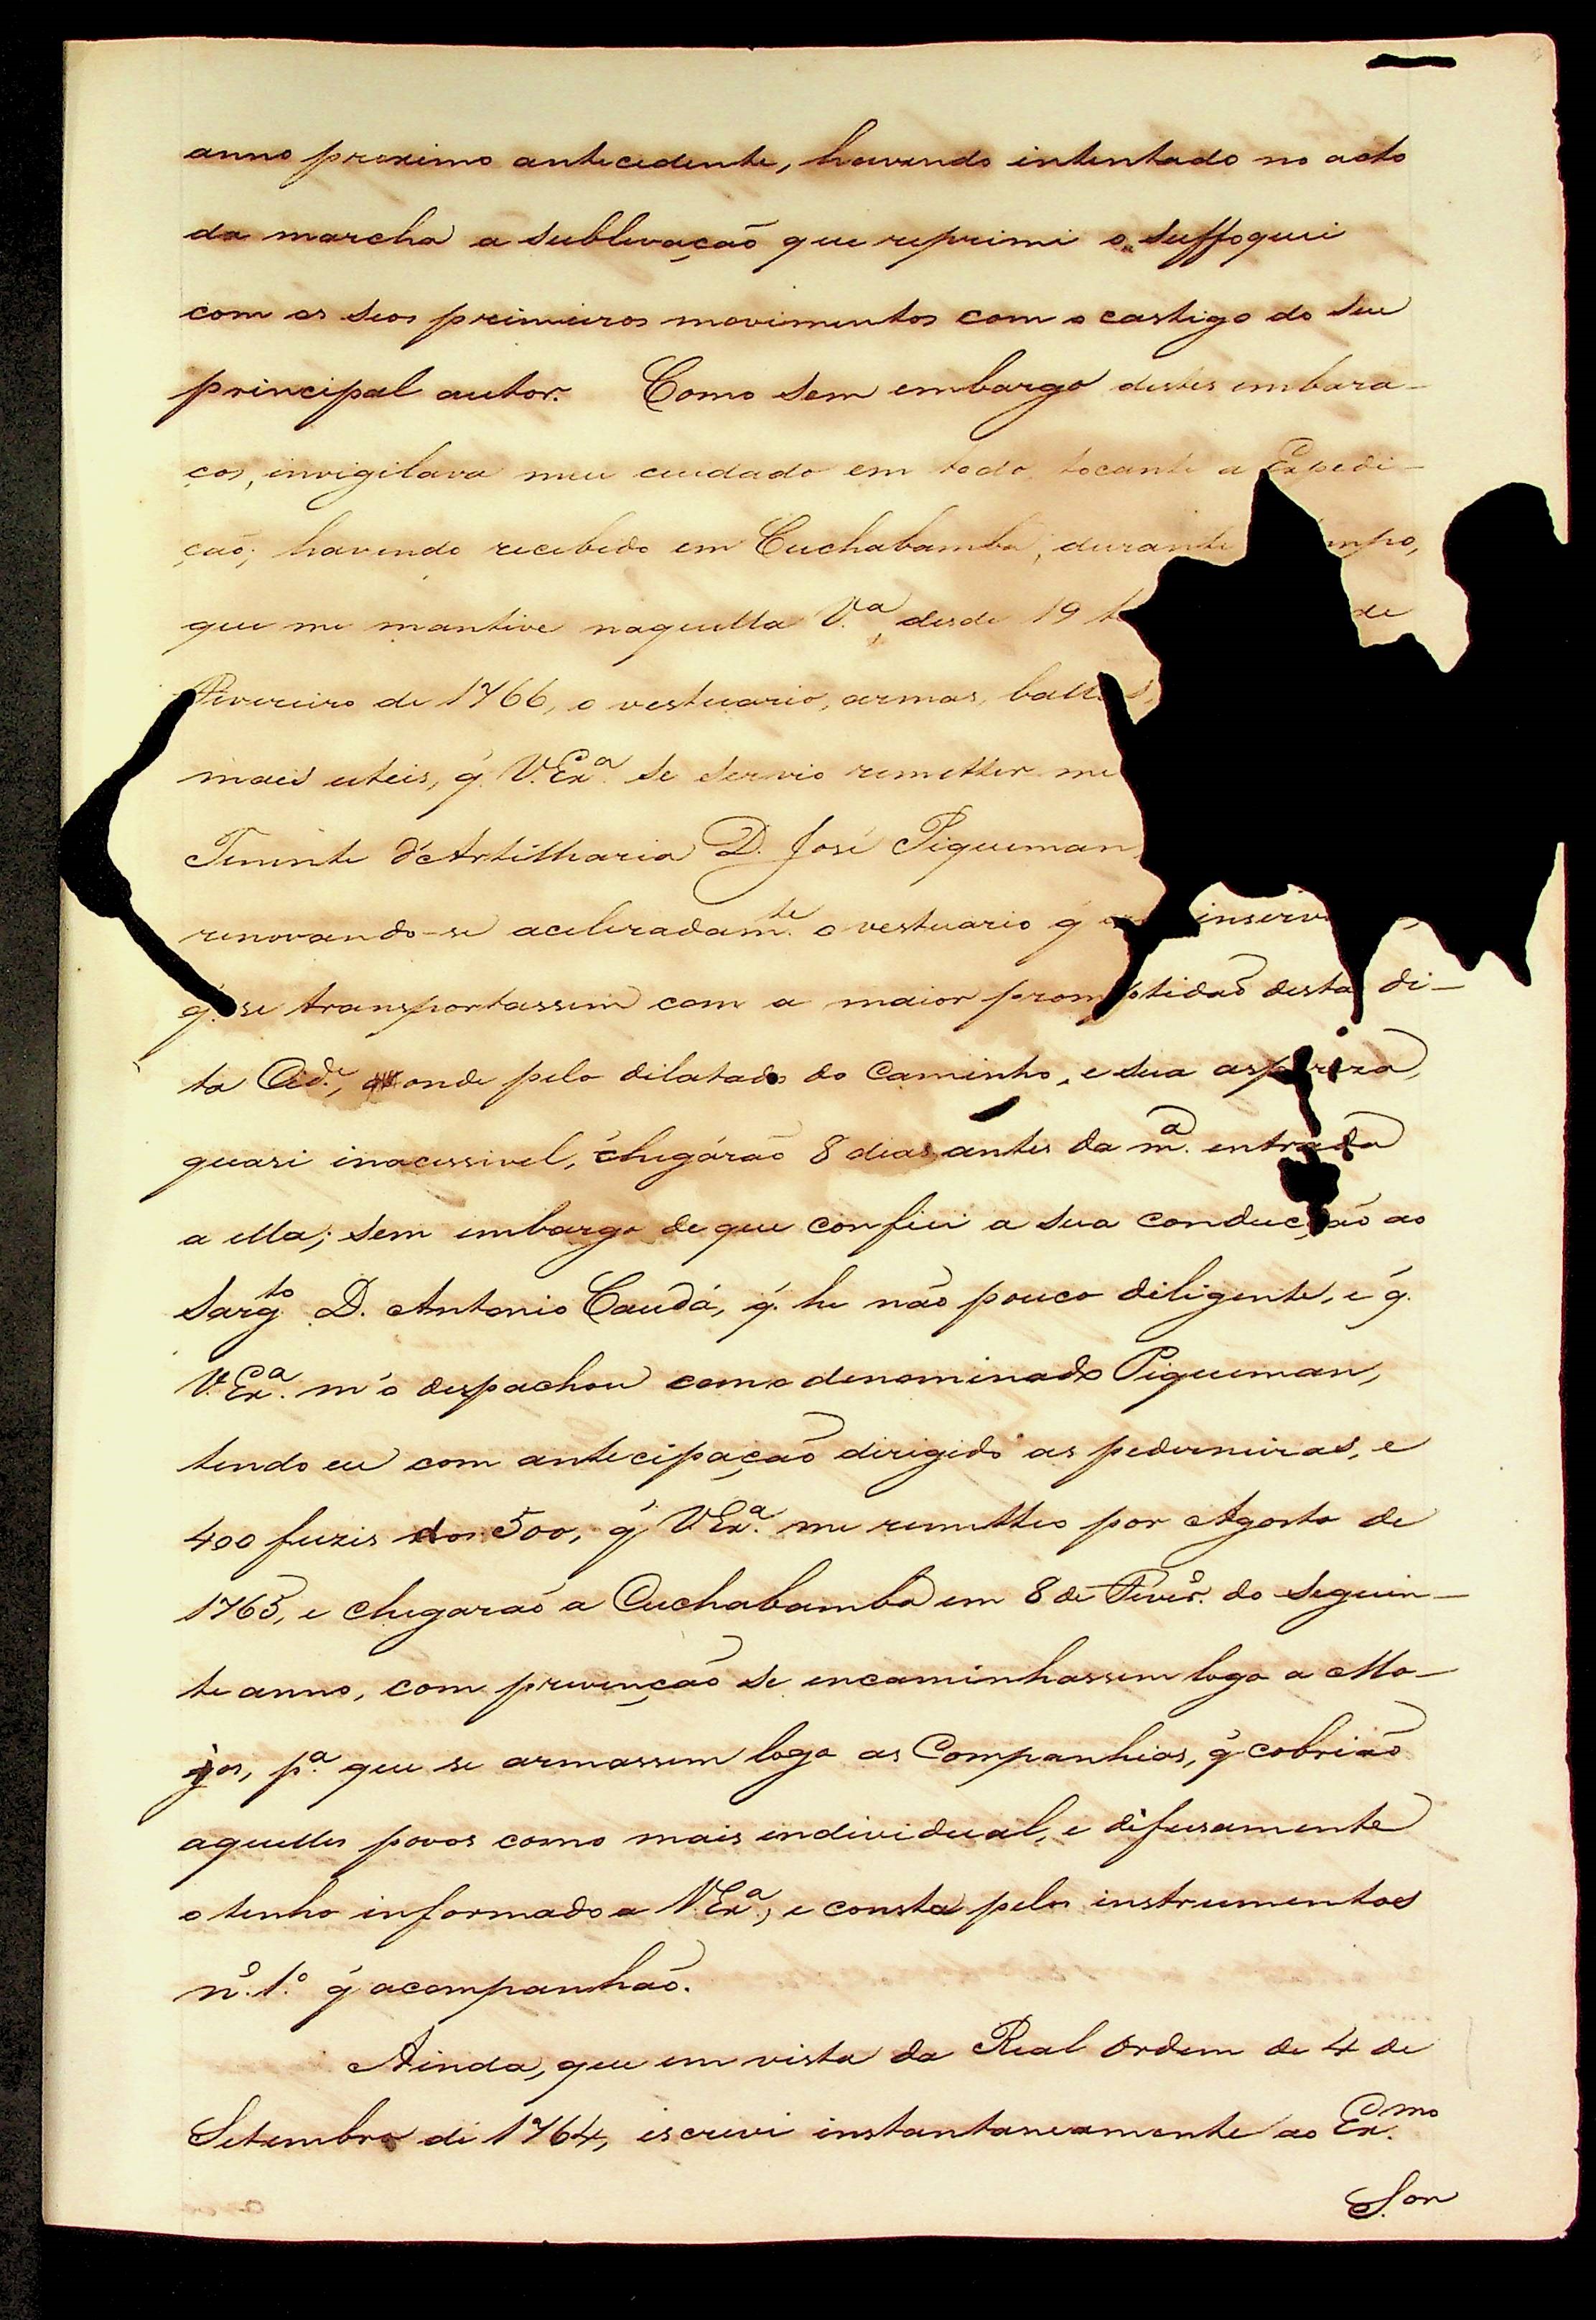 anno proximo antecedente, havendo intentado no acto
da marcha a sublevação que reprimi e suffoquei
com os seos primeiros movimentos com o castigo do seu
principal autor. Como sem embargo destes embara-
ços, invigilava meu cuidado em todo tocante a Expedi-
ção; havendo recebido em Cuchabamba, durante mpo,
que me mantive naquella V.ª, desde 19 de
Fevereiro de 1766, o vestuario, armas,
mais uteis, q̃. V.Exª. se servio remetter me
Tenente d'Artilharia D. José Piqueman
renovando-se aceleradam.te o vestuario q̃ inserv
q̃. se transportassem com a maior promptidão desta di-
ta Cid.e, onde pelo dilatado do Caminho, e sua aspereza,
quasi inacessivel, chegárão 8 dias antes da m.ª entrada
a ella; sem embargo de que confiei a sua conducção ao
Sarg.to D. Antonio Caudá, q̃. he não pouco diligente, e q̃.
V.Exª. m'o despachou com o denominado Piqueman,
tendo eu com antecipação dirigido as pederneiras, e
400 fuzis dos 500, q̃ V.Exª. me remetteo por Agosto de
1765, e chegarão a Cuchabamba em 8 de Fever.º do seguin-
te anno, com prevenção se encaminhassem logo a Mo-
jos, p.ª que se armassem logo as Companhias, q̃ cobrião
aquelles povos como mais individual, e difusamente
o tenho informado a V.Exª., e consta pelos instrumentos
n.º 1.º q̃ acompanhão.
Ainda, que em vista da Real Ordem de 4 de
Setembro de 1764, escrevi instantaneamente ao Ex.mo
S.or